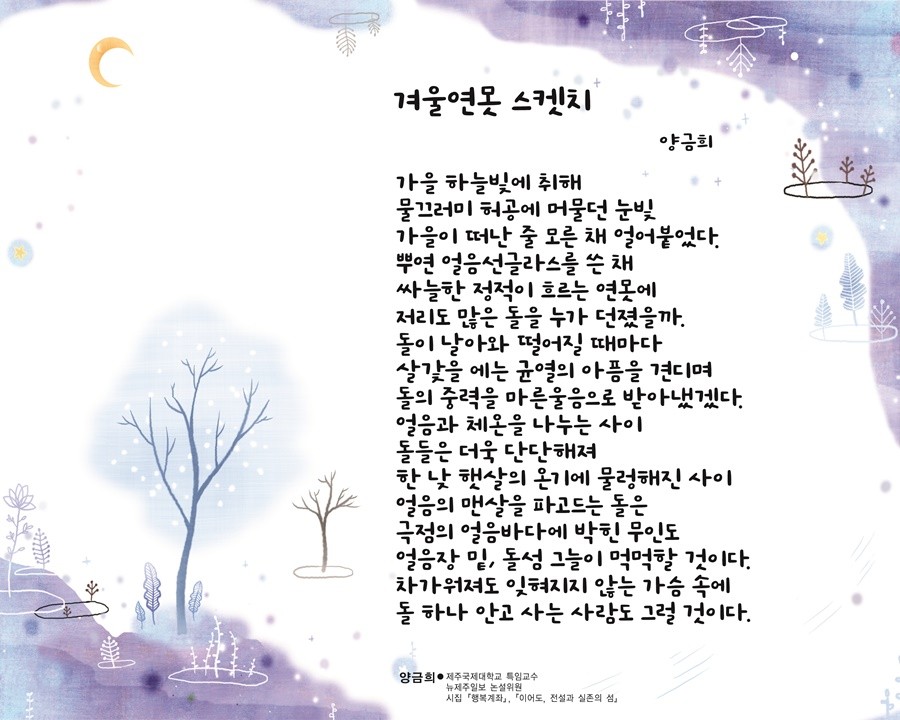 겨울연못 스켓치
양금희
가을 하늘빛에 취해
물끄러미 허공에 머물던 눈빛
가을이 떠난 줄 모른 채 얼어붙었다.
뿌연 얼음선글라스를 쓴 채
싸늘한 정적이 흐르는 연못에
저리도 많은 돌을 누가 던졌을까.
돌이 날아와 떨어질 때마다
살갗을 에는 균열의 아픔을 견디며
돌의 중력을 마른울음으로 받아냈겠다.
얼음과 체온을 나누는 사이
돌들은 더욱 단단해져
한 낮 햇살의 온기에 물렁해진 사이
얼음의 맨살을 파고드는 돌은
극점의 얼음바다에 박힌 무인도
얼음장 밑, 돌섬 그늘이 먹먹할 것이다.
차가워져도 잊혀지지 않는 가슴 속에
돌 하나 안고 사는 사람도 그럴 것이다.
양금희● 제주국제대학교 특임교수
뉴제주일보 논설위원
시집 「행복계좌」, 「이어도, 전설과 실존의 섬」